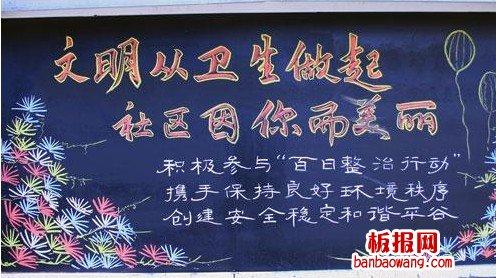 文明从卫生做起
社区因你而美丽
积极参与“百日整治行动”
携手保持良好环境秩序
创建安全稳定和谐平谷
板报网
banbaowang.com